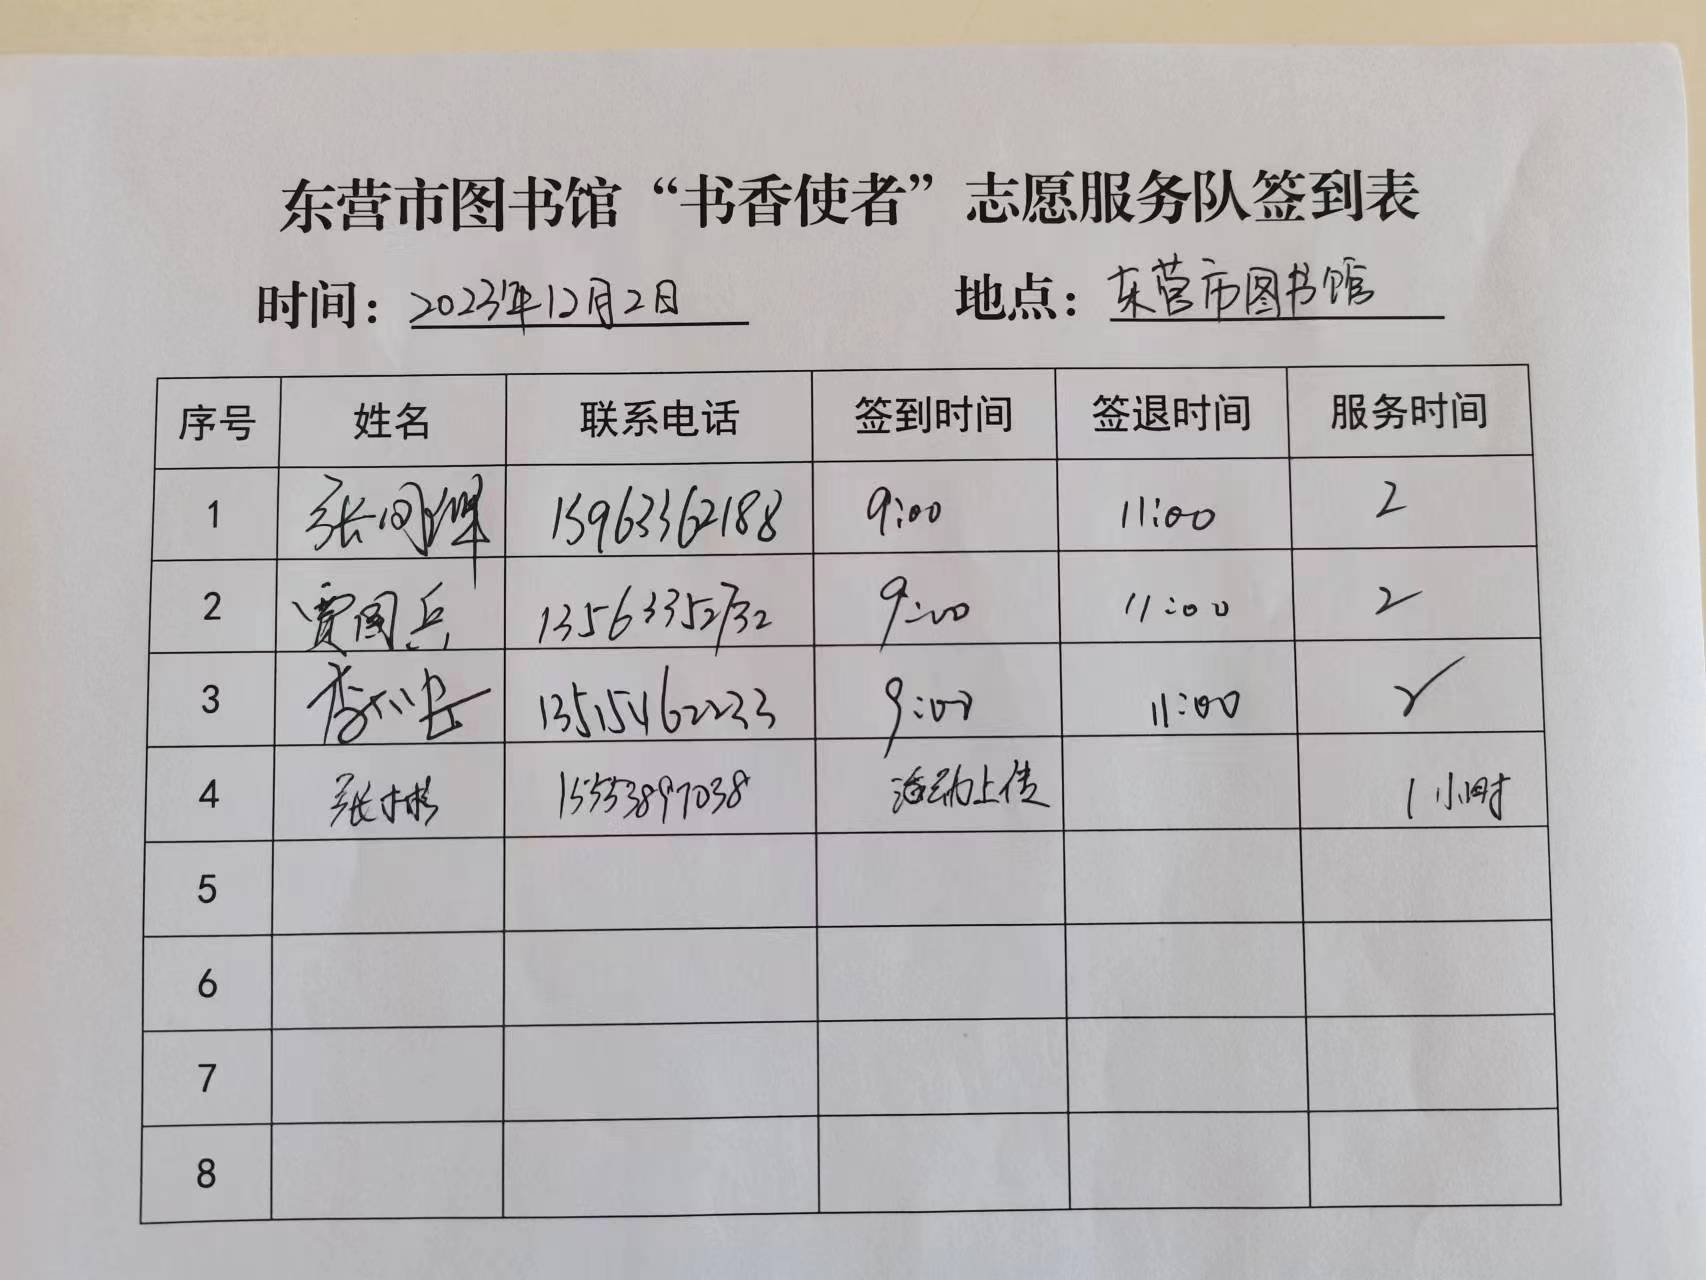 东营市图书馆“书香使者”志愿服务队签到表
时间：2023年12月2日 地点：东营市图书馆
序号 姓名 联系电话 签到时间 签退时间 服务时间
1 张 15963362188 9:00 11:00 2
2 贾国兵 13563352732 9:00 11:00 2
3 李 13515462233 9:00 11:00 2
4 张彬 15553897038 活动上传 1小时
5
6
7
8